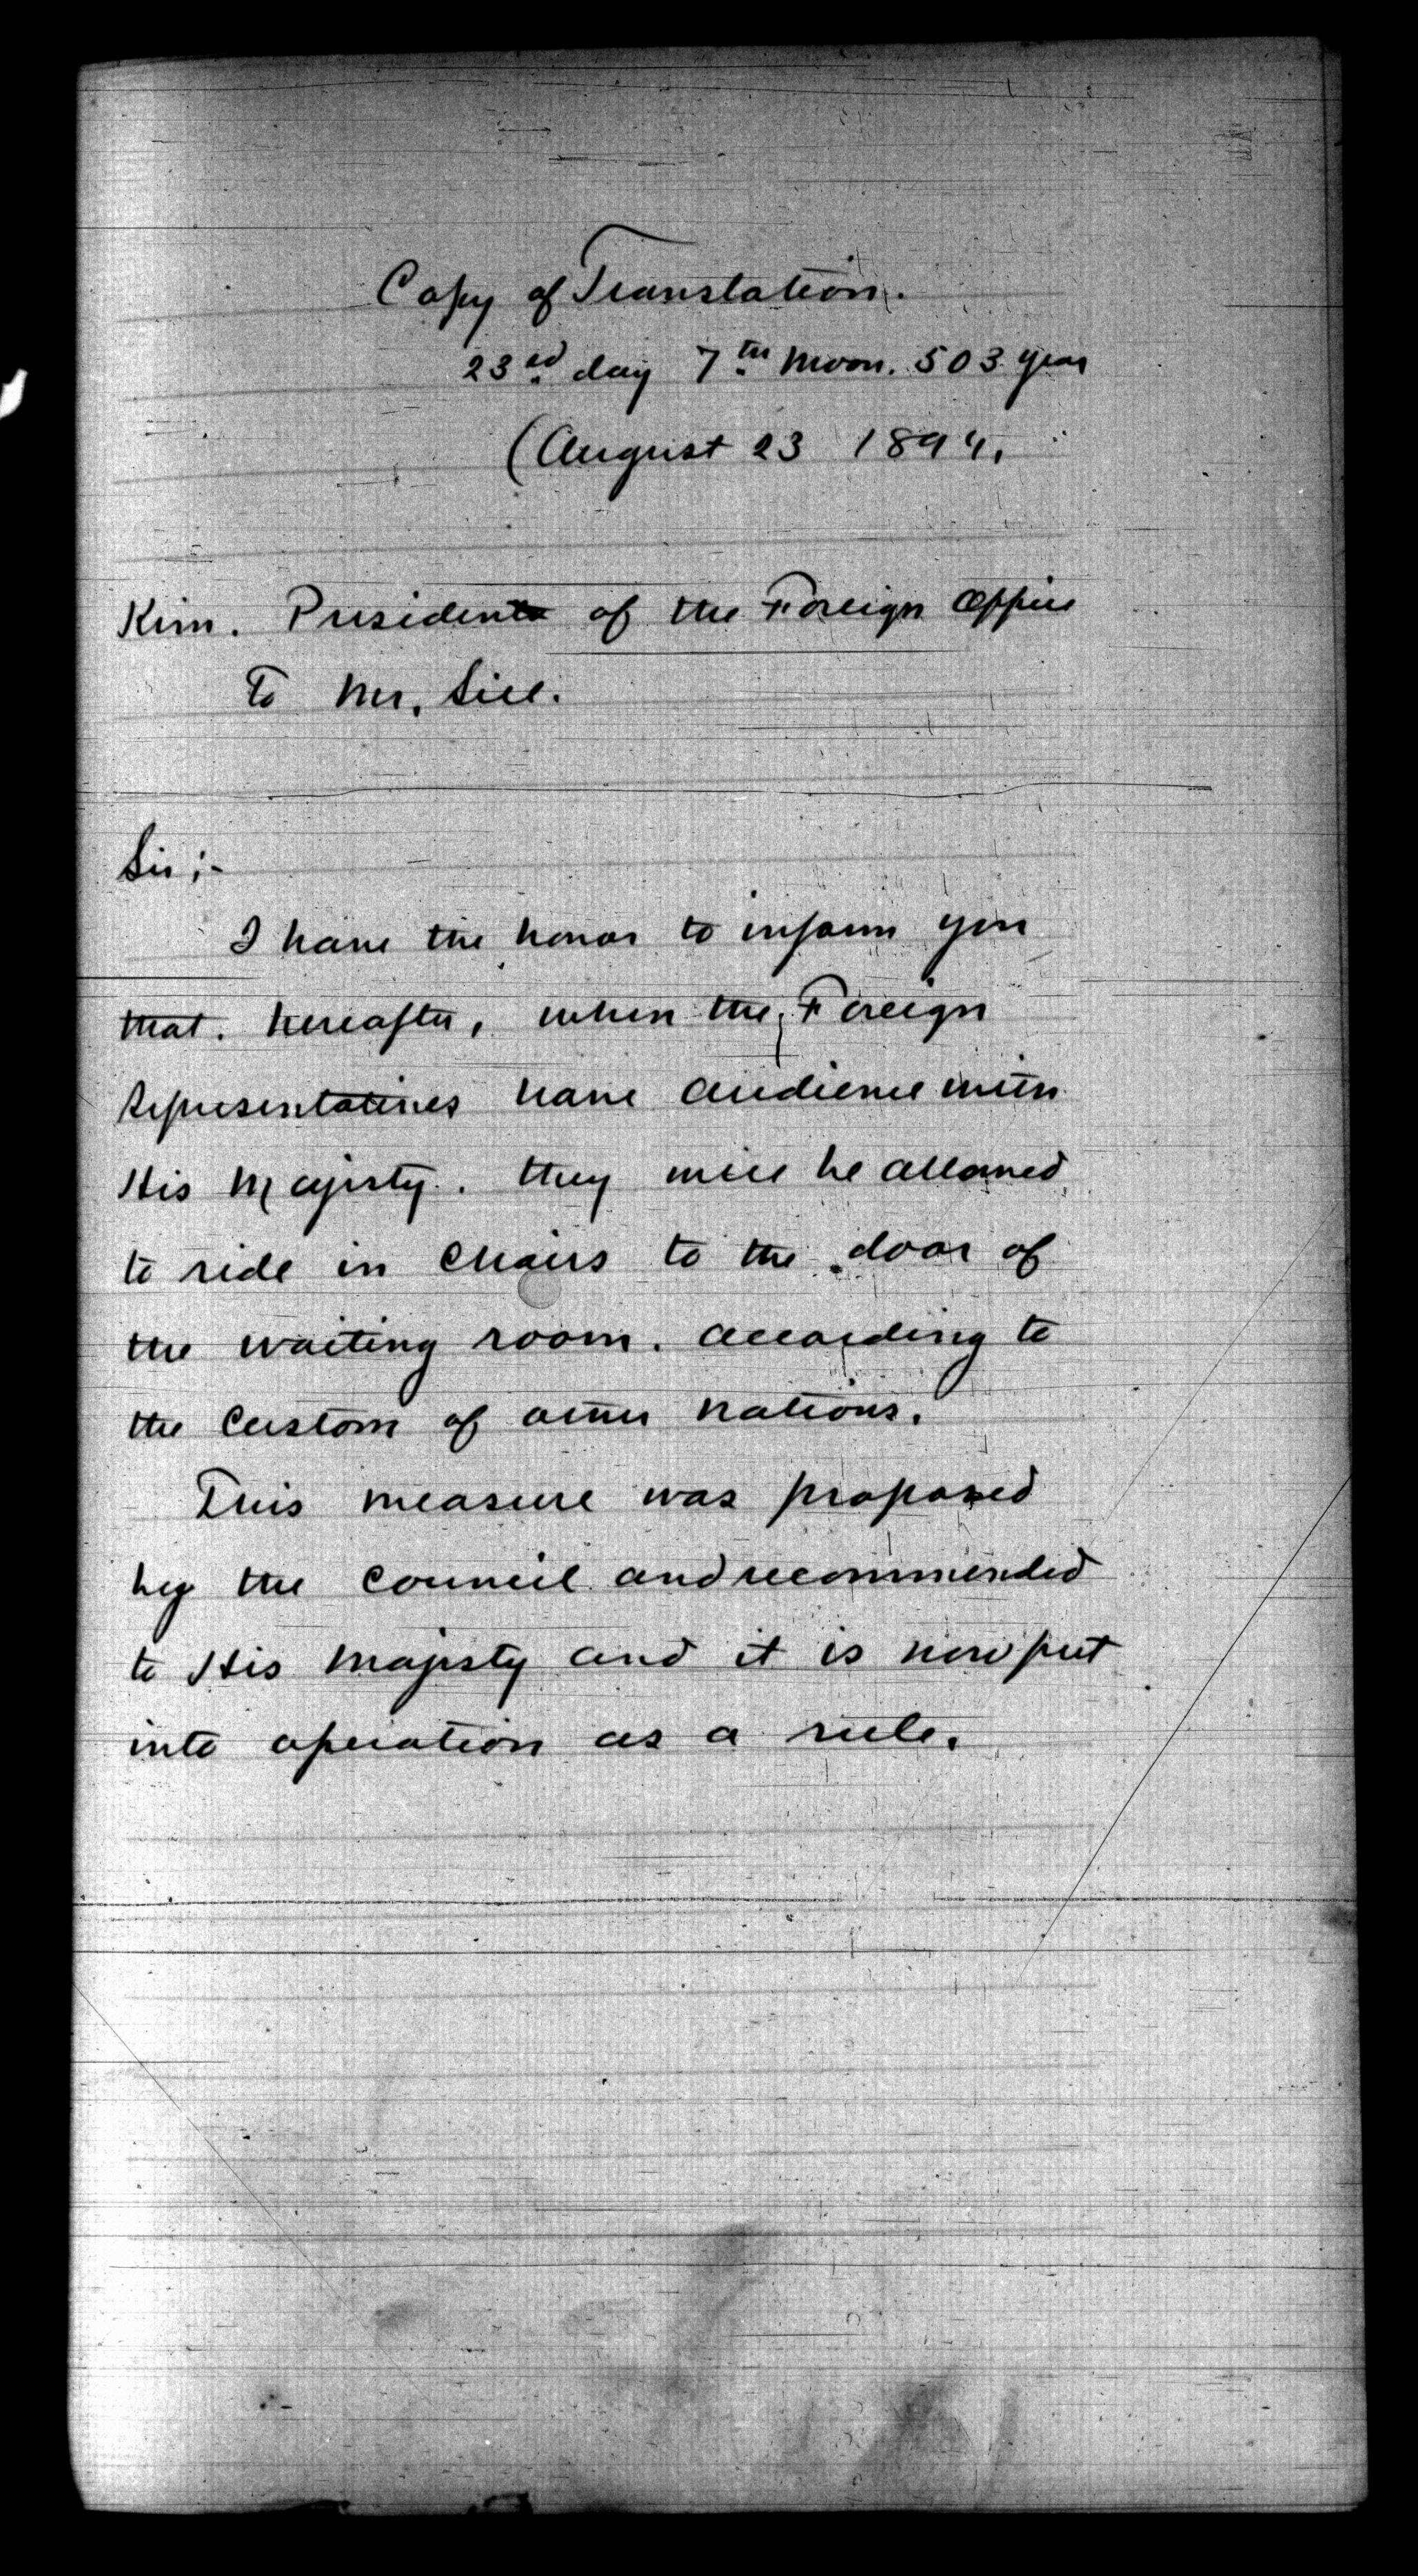 Copy of Translation.
23rd day 7th Moon. 503 year
(August 23 1894.
Kim. President of the Foreign Office
To Mr. Sill.
Sir;-
I have the honor to inform you
that. hereafter, when the Foreign
Representatives have audience with
His Majesty. they will be allowed
to ride in chairs to the door of
the waiting room. according to
the custom of other nations.
This measure was proposed
by the council and recommended
to His Majesty and it is now put
into operation as a rule.